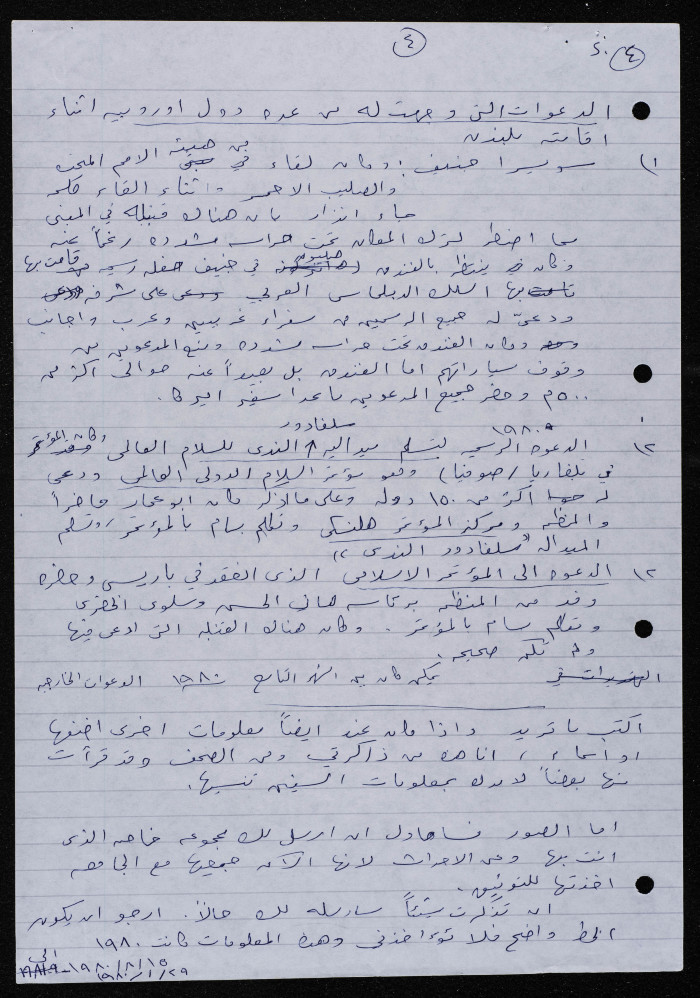 ٤
٤
الدعوات التي وجهت له من عدة دول اوروبيه اثناء
اقامته بلندن
١) سويسرا جنيف: وكان لقاء في بين هيئة الامم المتحده
والصليب الاحمر واثناء القاء كلمه
جاء انذار بان هناك قنبله في المبنى
مما اضطر لترك المكان تحت حراسه مشدده رغماً عنه
وكان ينتظر بالفندق في جنيف حفله رسميه قامت بها
السلك الدبلماسي العربي وعلى شرفه
ودعيّ له جميع الرسميين من سفراء غربيين وعرب واجانب
وكان الفندق تحت حراسه مشدده ومنع المدعوين من
وقوف سياراتهم امام الفندق بل بعيداً عنه حوالي اكثر من
٥٠٠م وحضر جميع المدعوين ما عدا سفير اميركا.
١٩٨٠
سلفادور
٢) الدعوه الرسميه لتسلم ميداليه الندي للسلام العالمي وكان المؤتمر
في بلغاريا (صوفيا) وهو مؤتمر السلام الدولي العالمي ودعي
له اكثر من ١٥٠ دوله وعلى ما اذكر كان ابو عمار حاضراً
والمنظمه ومركز المؤتمر هلسنكي وتكلم بسام بالمؤتمر وتسلم
الميداليه "سلفادور الندي"
٣) الدعوه الى المؤتمر الاسلامي الذي انعقد في باريس وحضره
وفد من المنظمه برئاسه هاني الحسن وسلوى الخضري
وتكلم بسام بالمؤتمر. وكان هناك القنبله التي ادعي فيها
ولم تكن صحيحه.
يمكن كان من الشهر التاسع ١٩٨٠ الدعوات الخارجيه
اكتب ما تريد واذا كان عند ايضاً معلومات اخرى اضفها
او اسماء، انا هذه من ذاكرتي ومن الصحف وقد قرأت
منها بعضاً لا بد بمعلومات السنين تنسيها.
اما الصور فسأحاول ان ارسل لك مجموعه خاصه الذي
انت بها وعن الاحداث لانها الآن جميعها مع الجامعه
اخذتها للتوثيق.
ان تذكرت شيئاً سارسله لك حالاً. ارجو ان يكون
الخط واضح فلا تؤاخذني وهذه المعلومات كانت ١٩٨٠
١٩٨٠/٨/١٥ الى
١٩٨٠/١/٢٩